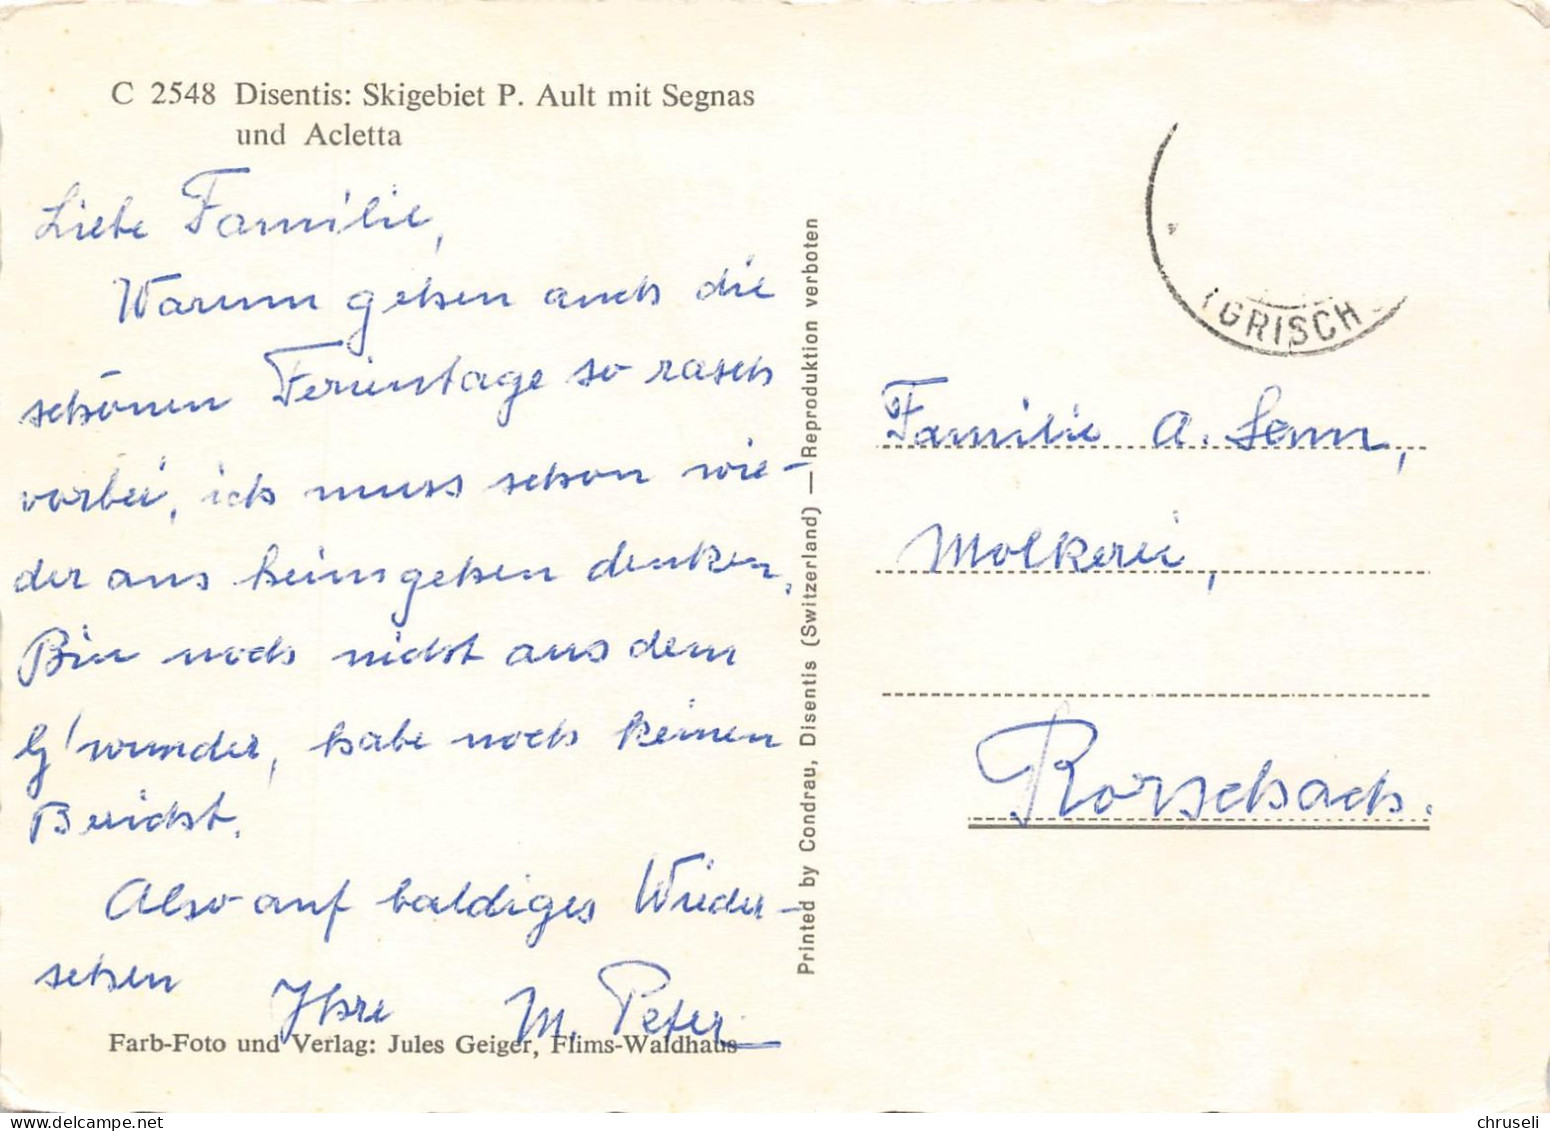 C 2548 Disentis: Skigebiet P. Ault mit Segnas
und Acletta
Liebe Familie,
Warum gehen auch die
schönen Ferientage so rasch
vorbei, ich muss schon wie-
der ans heimgehen denken.
Bin noch nicht aus dem
G'wunder, habe noch keinen
Bericht.
Also auf baldiges Wieder-
sehen
Ihre M. Peter
Farb-Foto und Verlag: Jules Geiger, Flims-Waldhaus
Printed by Condrau, Disentis (Switzerland) — Reproduktion verboten
(GRISCH
Familie A. Senn,
Molkerei,
Rorschach.
chruseli